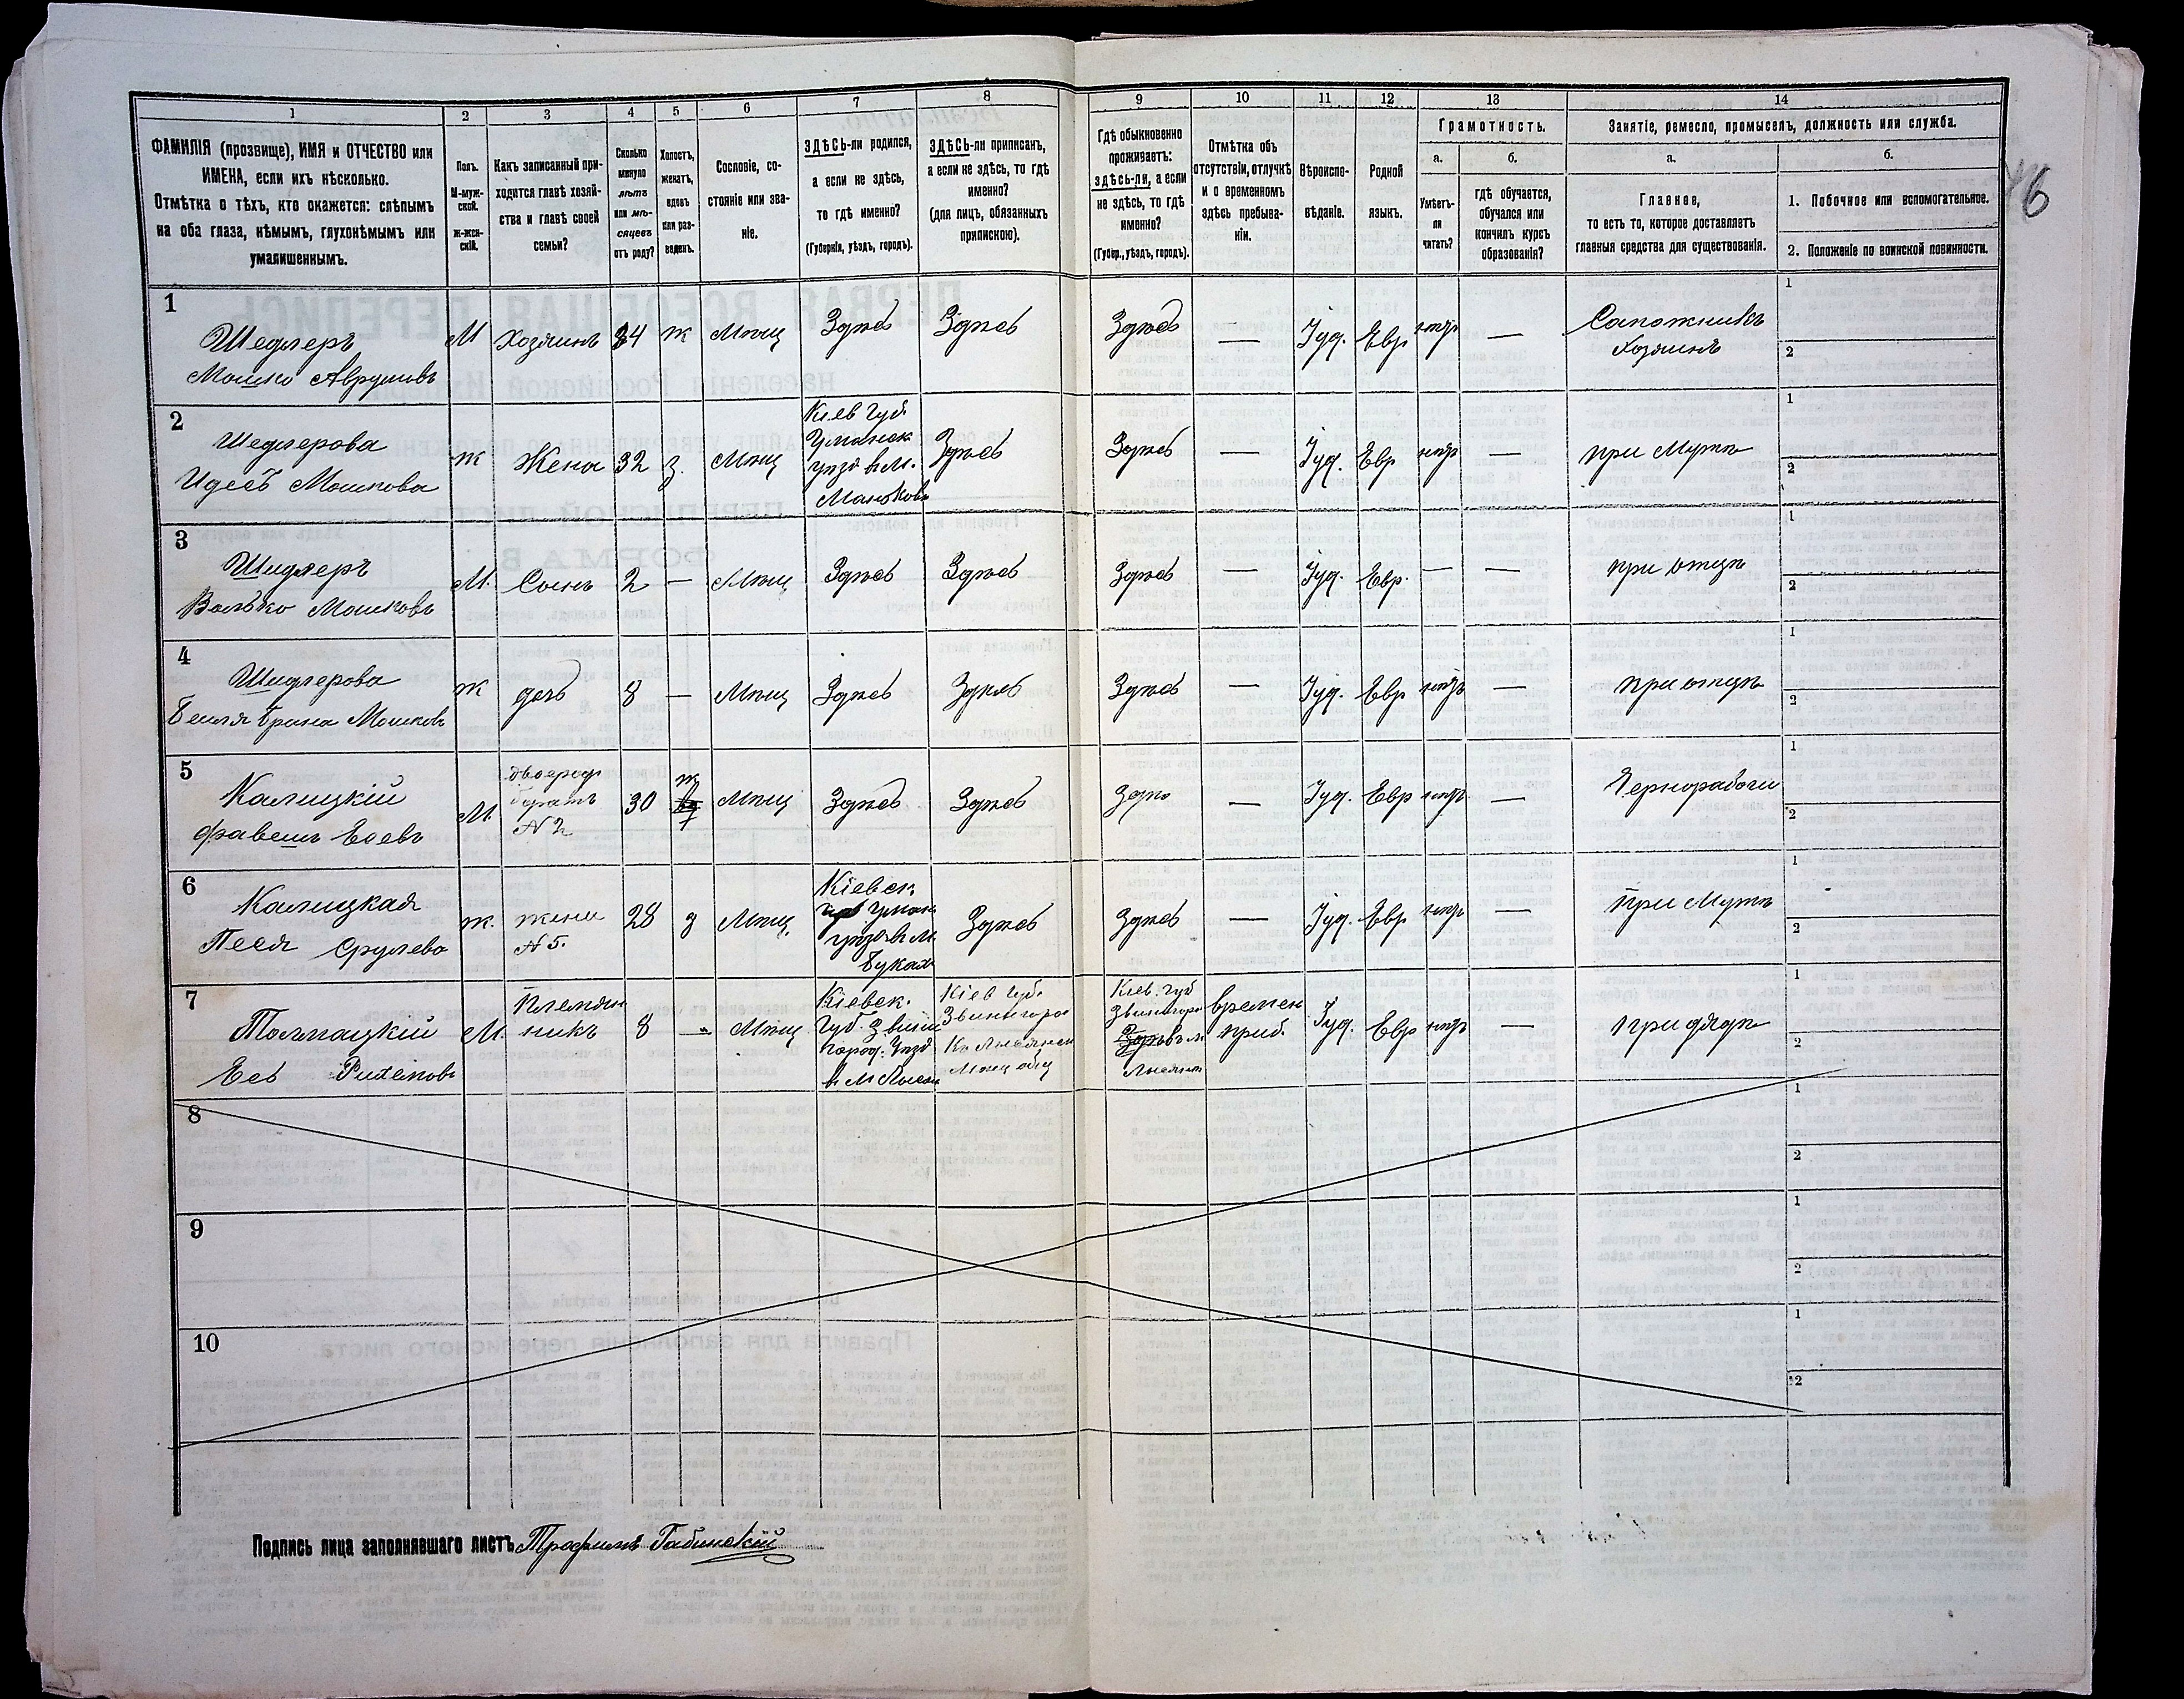 1 2 3 4 5 6 7 8 9 10 11 12 13 14
ФАМИЛІЯ (прозвище), ИМЯ и ОТЧЕСТВО или
ИМЕНА, если ихъ нѣсколько.
Отмѣтка о тѣхъ, кто окажется: слѣпымъ
на оба глаза, нѣмымъ, глухонѣмымъ или
умалишеннымъ.
Полъ.
М-муж-
ской.
Ж-жен-
скій.
Какъ записанный при-
ходится главѣ хозяй-
ства и главѣ своей
семьи?
Сколько
минуло
лѣтъ
или мѣ-
сяцевъ
отъ роду?
Холостъ,
женатъ,
вдовъ
или раз-
веденъ.
Сословіе, со-
стояніе или зва-
ніе.
ЗДѢСЬ-ли родился,
а если не здѣсь,
то гдѣ именно?
(Губернія, уѣздъ, городъ).
ЗДѢСЬ-ли приписанъ,
а если не здѣсь, то гдѣ
именно?
(для лицъ, обязанныхъ
припискою).
Гдѣ обыкновенно
проживаетъ:
здѣсь-ли, а если
не здѣсь, то гдѣ
именно?
(Губер., уѣздъ, городъ).
Отмѣтка объ
отсутствіи, отлучкѣ
и о временномъ
здѣсь пребыва-
ніи.
Вѣроиспо-
вѣданіе.
Родной
языкъ.
Грамотность.
а.
Умѣетъ-
ли
читать?
б.
гдѣ обучается,
обучался или
кончилъ курсъ
образованія?
Занятіе, ремесло, промыселъ, должность или служба.
а.
Главное,
то есть то, которое доставляетъ
главныя средства для существованія.
б.
1. Побочное или вспомогательное.
2. Положеніе по воинской повинности.
46
1
Шедлеръ
Мошко Аврумовъ
М Хозяинъ 34 ж Мѣщ Здѣсь Здѣсь Здѣсь — Іуд. Евр нѣтъ —
Сапожникъ
хозяинъ
1
2
2
Шедлерова
Идесъ Мошкова
ж Жена 32 з. Мѣщ
Кіев Губ.
Уманск
уѣзд в м.
Маньковк
Здѣсь Здѣсь — Іуд. Евр нѣтъ — при Мужѣ
1
2
3
Шидлеръ
Волько Мошковъ
М. Сынъ 2 — Мѣщ Здѣсь Здѣсь Здѣсь — Іуд. Евр. — — при отцѣ
1
2
4
Шидлерова
Бейля Брана Мошков
ж дочь 8 — Мѣщ Здѣсь Здѣсь Здѣсь — Іуд. Евр нѣтъ — при отцѣ
1
2
5
Калицкій
Есевъ
М.
двоерод
братъ
№ 2
30 ж Мѣщ Здѣсь Здѣсь Здѣ — Іуд. Евр нѣтъ — Чернорабочи
1
2
6
Калицкая
Песя Срулева
ж.
жена
№ 5.
28 з Мѣщ.
Кіевск.
Уман
уѣзд в м.
Буках
Здѣсь Здѣсь — Іуд. Евр нѣтъ — при Мужѣ
1
2
7
Толмацкій
Есь
М.
Племян
никъ
8 — Мѣщ
Кіевск.
Губ. Звини
город. Уѣзд
в М Лысян
Кіев Губ.
Звинигоро
Къ Лисянск
Мѣщ общ
Кіев. губ
Звинигоро
в м
Лысянк
времен
приб.
Іуд. Евр нѣтъ — при дядѣ
1
2
8
1
2
9
1
2
10
1
2
Подпись лица заполнявшаго листъ Трофимъ Габинскій